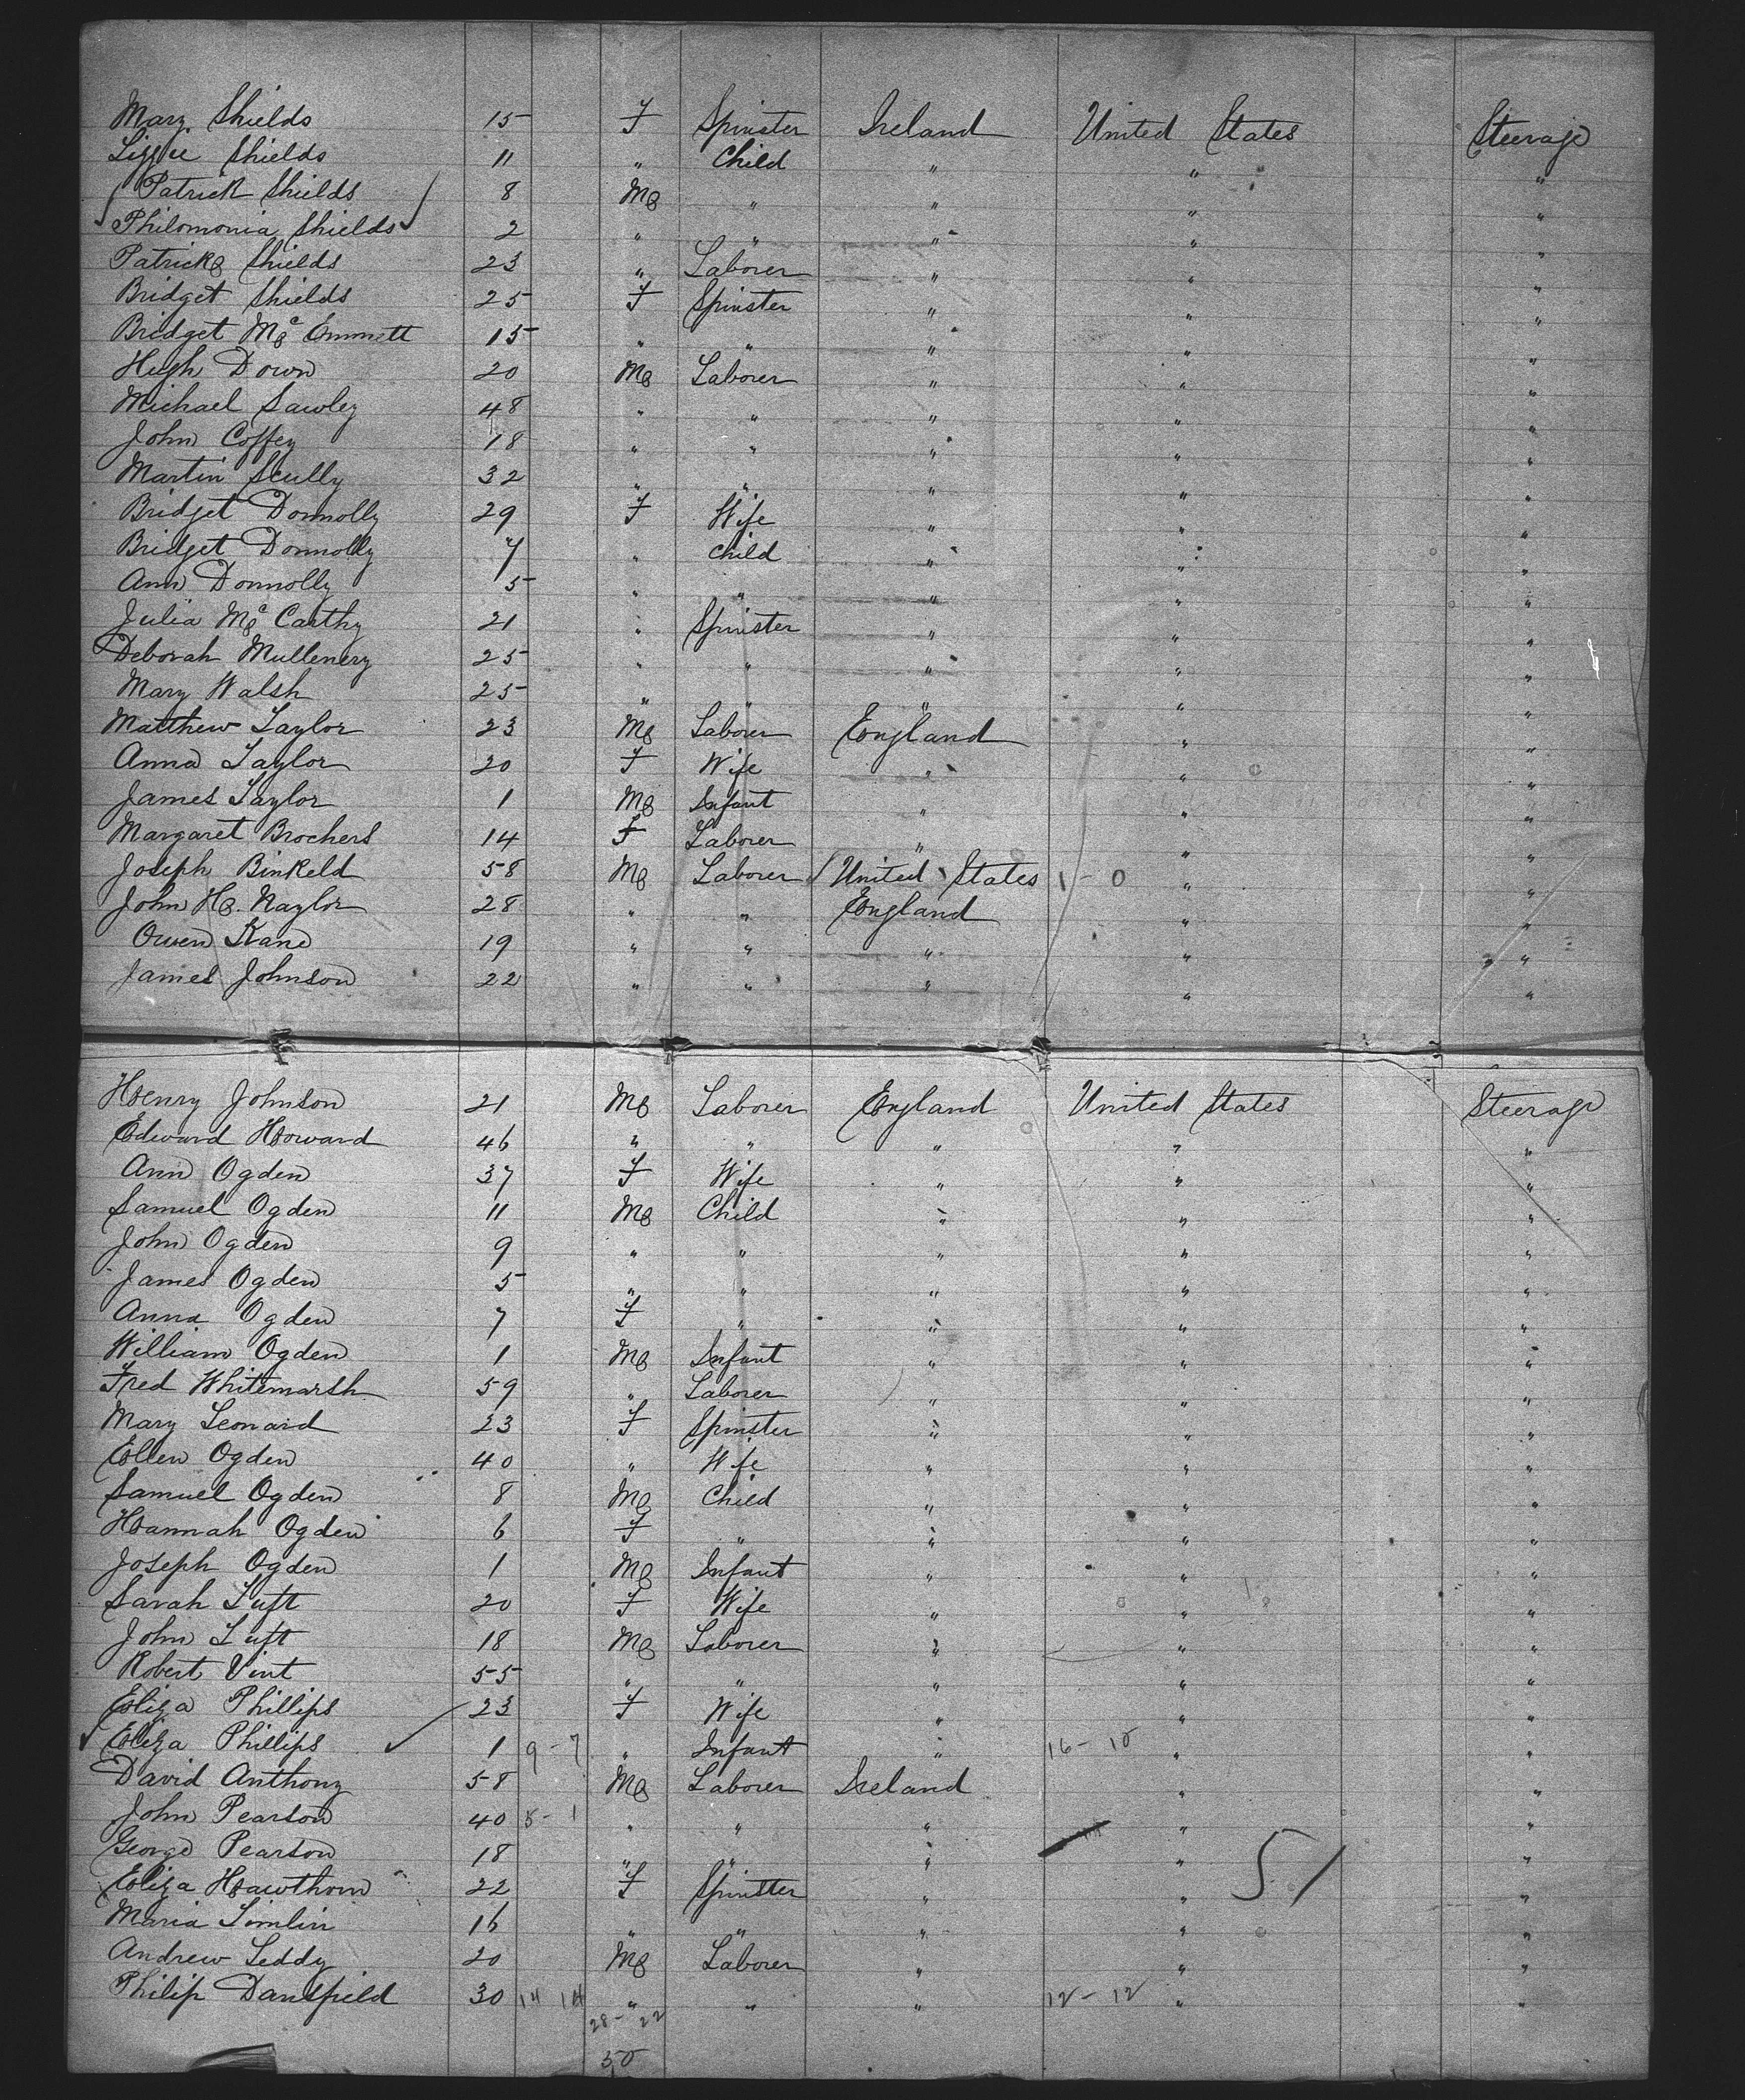 Mary Shields 15 F Spinster Ireland United States Steerage
Lizzie Shields 11 " Child " " "
Patrick Shields 8 M " " " "
Philomonia Shields 2 " " " " "
Patrick Shields 23 " Laborer " " "
Bridget Shields 25 F Spinster " " "
Bridget Mc Emmett 15 " " " " "
Hugh Down 20 M Laborer " " "
Michael Sawley 48 " " " " "
John Coffey 18 " " " " "
Martin Scully 32 " " " " "
Bridget Donnolly 29 F Wife " " "
Bridget Donnolly 7 " Child " " "
Ann Donnolly 5 " " " " "
Julia Mc Carthy 21 " Spinster " " "
Deborah Mullenery 25 " " " " "
Mary Walsh 25 " " " " "
Matthew Taylor 23 M Laborer England " "
Anna Taylor 20 F Wife " " "
James Taylor 1 M Infant " " "
Margaret Brochers 14 F Laborer " " "
Joseph Binkeld 58 M Laborer United States 1 - 0 " "
John H. Naylor 28 " " England " "
Owen Kane 19 " " " " "
James Johnson 22 " " " " "
Henry Johnson 21 M Laborer England United States Steerage
Edward Howard 46 " " " " "
Ann Ogden 37 F Wife " " "
Samuel Ogden 11 M Child " " "
John Ogden 9 " " " " "
James Ogden 5 " " " " "
Anna Ogden 7 F " " " "
William Ogden 1 M Infant " " "
Fred Whitemarsh 59 " Laborer " " "
Mary Leonard 23 F Spinster " " "
Ellen Ogden 40 " Wife " " "
Samuel Ogden 8 M Child " " "
Hannah Ogden 6 F " " " "
Joseph Ogden 1 M Infant " " "
Sarah Tuft 20 F Wife " " "
John Tuft 18 M Laborer " " "
Robert Vint 55 " " " " "
Eliza Phillips 23 F Wife " " "
Eliza Phillips 1 9 - 7 " Infant " 16 - 10 " "
David Anthony 58 M Laborer Ireland " "
John Pearson 40 5 - 1 " " " " "
George Pearson 18 " " " " "
Eliza Hawthorn 22 F Spinster " " 51 "
Maria Timlin 16 " " " " "
Andrew Leddy 20 M Laborer " " "
Philip Dansfield 30 14 14 " " " 12 - 12 " "
28 - 22
50